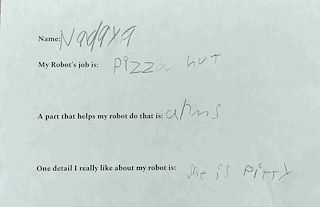 Name: Nadaxa
My Robot's job is: pizza hut
A part that helps my robot do that is: arms
One detail I really like about my robot is: she is pirry